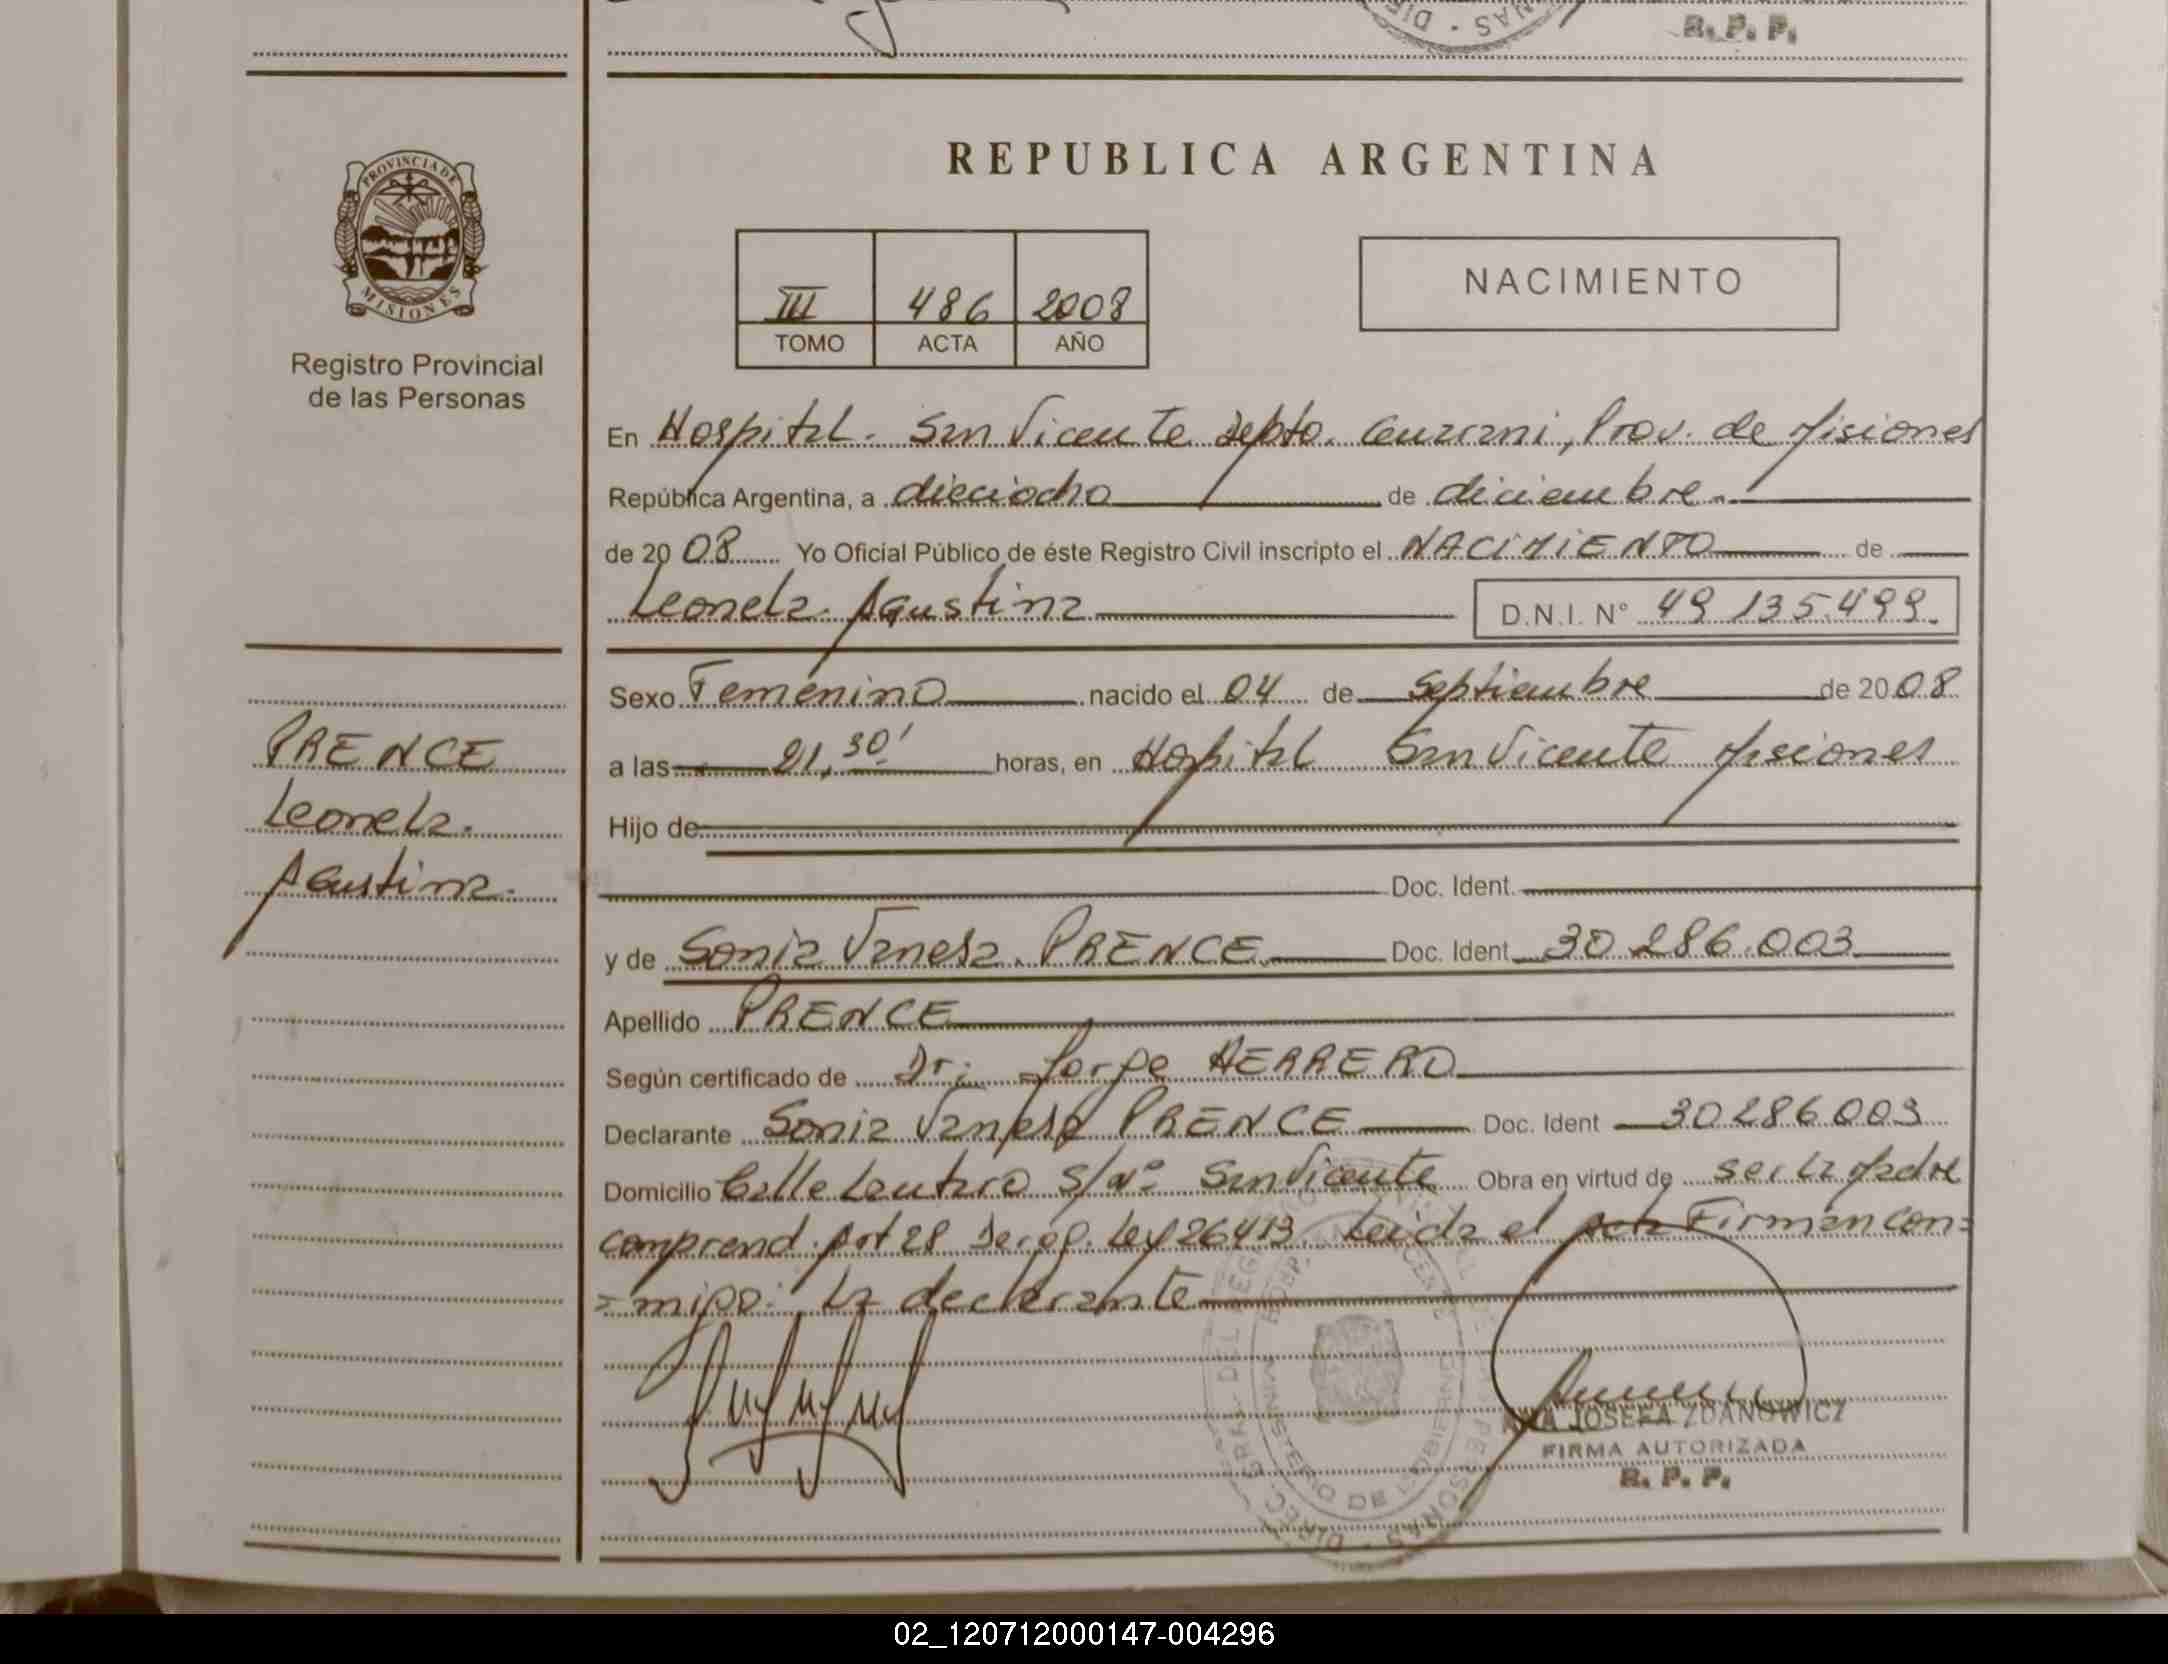 R. P. P.
PROVINCIA DE
MISIONES
Registro Provincial
de las Personas
REPUBLICA ARGENTINA
III 486 2008
TOMO ACTA AÑO
NACIMIENTO
En Hospital. San Vicente depto. Guarani, Prov. de Misiones
República Argentina, a dieciocho de diciembre.
de 2008 Yo Oficial Público de éste Registro Civil inscripto el NACIMIENTO de
Leonela Agustina D.N.I. N° 49 135.499.
Sexo Femenino nacido el 04 de Septiembre de 2008
a las 21,30' horas, en Hospital San Vicente Misiones
Hijo de
Doc. Ident.
y de Sonia Vanesa PRENCE Doc. Ident 30.286.003
Apellido PRENCE
Según certificado de Dr: Jorge HERRERO
Declarante Sonia Vanesa PRENCE Doc. Ident 30286003
Domicilio Calle Lautaro S/Nº San Vicente Obra en virtud de ser la Madre
comprend. Art 28 Derog. Ley 26413 Leida el acta Firman con=
=migo: la declarante
PRENCE
Leonela.
Agustina.
ANA JOSEFA ZDANOWICZ
FIRMA AUTORIZADA
R. P. P.
02_120712000147-004296